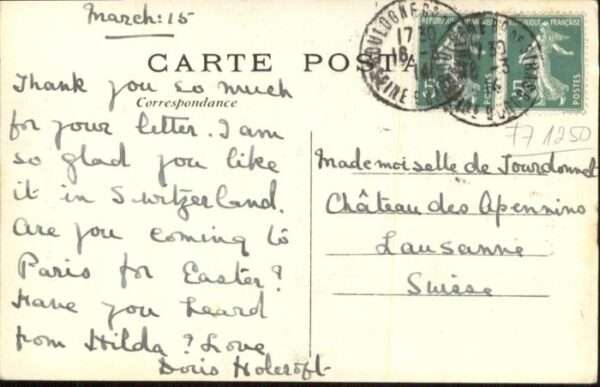 March: 15
CARTE POSTA
Correspondance
Thank you so much
for your letter. I am
so glad you like
it in Switzerland.
Are you coming to
Paris for Easter?
Have you heard
from Hilda? Love
Doris Holcroft
RÉPUBLIQUE FRANÇAISE
POSTES
POSTES
BOULOGNE
17 30
Mademoiselle de Jourdonnet
Château des Apennins
Lausanne
Suisse